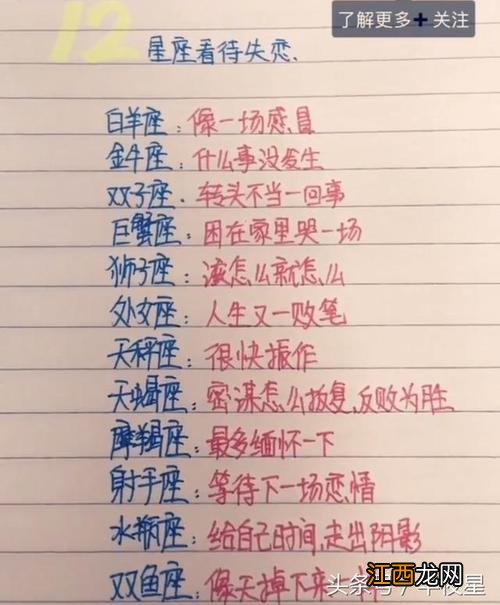 了解更多+ 关注
12
星座看待失恋.
白羊座：像一场感冒
金牛座：什么事没发生
双子座．转头不当一回事
巨蟹座：困在家里哭一场
狮子座：该怎么就怎么
处女座：人生又一败笔
天秤座：很快振作
天蝎座：密谋怎么报复,反败为胜
摩羯座：最多缅怀一下
射手座：等待下一场恋情
水瓶座：给自己时间,走出阴影
双鱼座：像天掉下来
头条号／半夜星
江西龙网